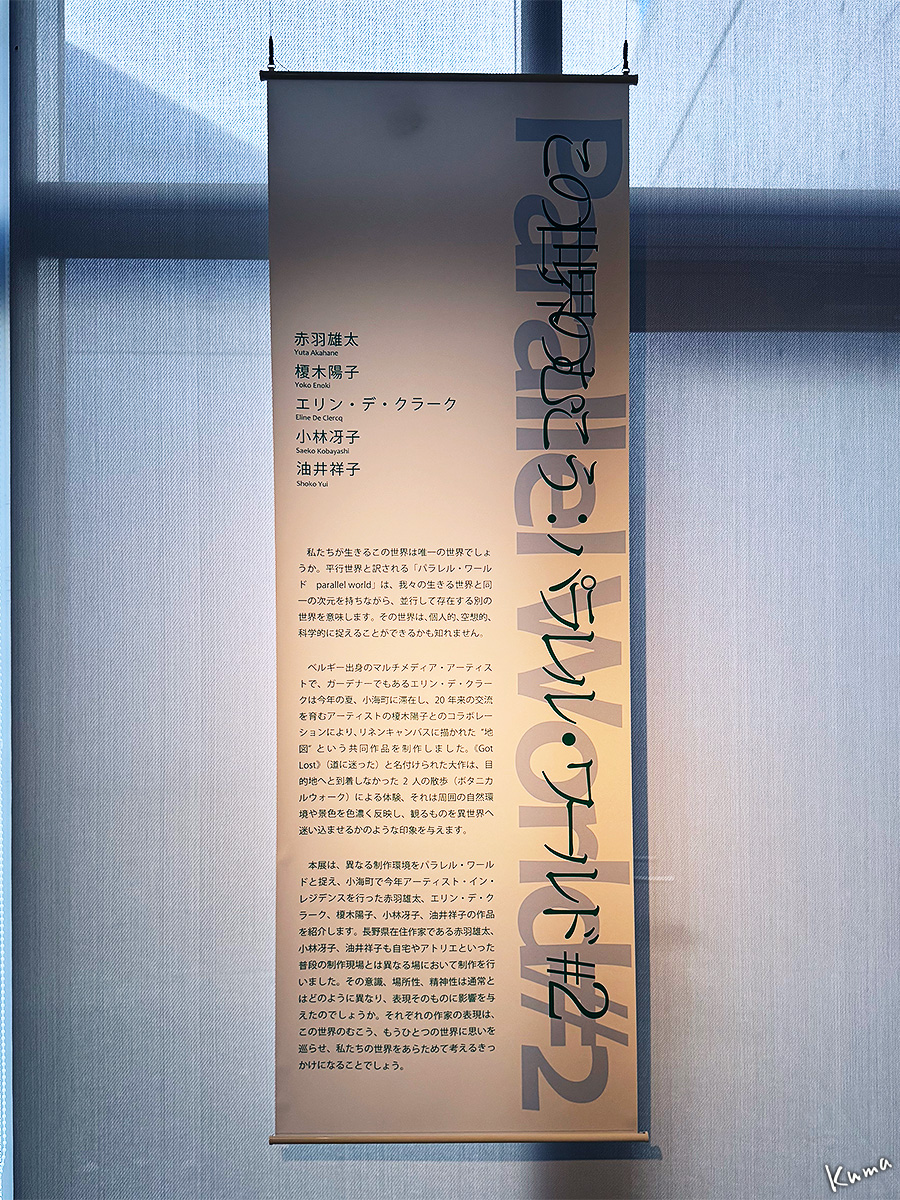 この世界のむこう：パラレル・ワールド#2
Parallel World#2
赤羽雄太
Yuta Akahane
榎木陽子
Yoko Enoki
エリン・デ・クラーク
Eline De Clercq
小林冴子
Saeko Kobayashi
油井祥子
Shoko Yui
私たちが生きるこの世界は唯一の世界でしょ
うか。平行世界と訳される「パラレル・ワール
ド　parallel world」は、我々の生きる世界と同
一の次元を持ちながら、並行して存在する別の
世界を意味します。その世界は、個人的、空想的、
科学的に捉えることができるかも知れません。
ベルギー出身のマルチメディア・アーティス
トで、ガーデナーでもあるエリン・デ・クラー
クは今年の夏、小海町に滞在し、20 年来の交流
を育むアーティストの榎木陽子とのコラボレー
ションにより、リネンキャンバスに描かれた “地
図” という共同作品を制作しました。《Got
Lost》（道に迷った）と名付けられた大作は、目
的地へと到着しなかった 2 人の散歩（ボタニカ
ルウォーク）による体験、それは周囲の自然環
境や景色を色濃く反映し、観るものを異世界へ
迷い込ませるかのような印象を与えます。
本展は、異なる制作環境をパラレル・ワール
ドと捉え、小海町で今年アーティスト・イン・
レジデンスを行った赤羽雄太、エリン・デ・ク
ラーク、榎木陽子、小林冴子、油井祥子の作品
を紹介します。長野県在住作家である赤羽雄太、
小林冴子、油井祥子も自宅やアトリエといった
普段の制作現場とは異なる場において制作を行
いました。その意識、場所性、精神性は通常と
はどのように異なり、表現そのものに影響を与
えたのでしょうか。それぞれの作家の表現は、
この世界のむこう、もうひとつの世界に思いを
巡らせ、私たちの世界をあらためて考えるきっ
かけになることでしょう。
Kuma